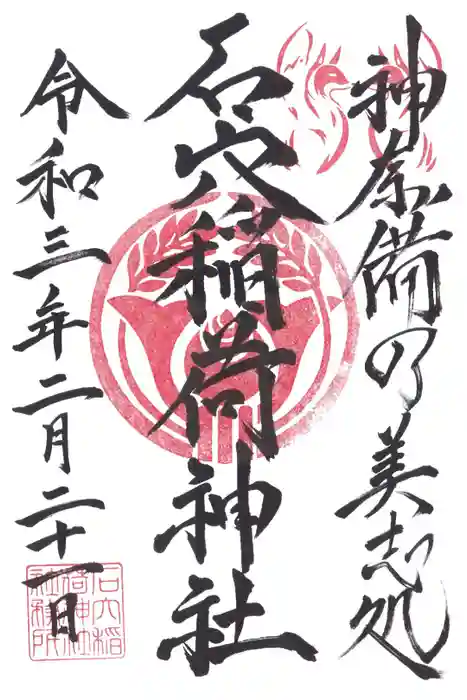 神奈備の美志処
石穴稲荷神社
令和三年二月二十一日
石穴稲荷神社社務所